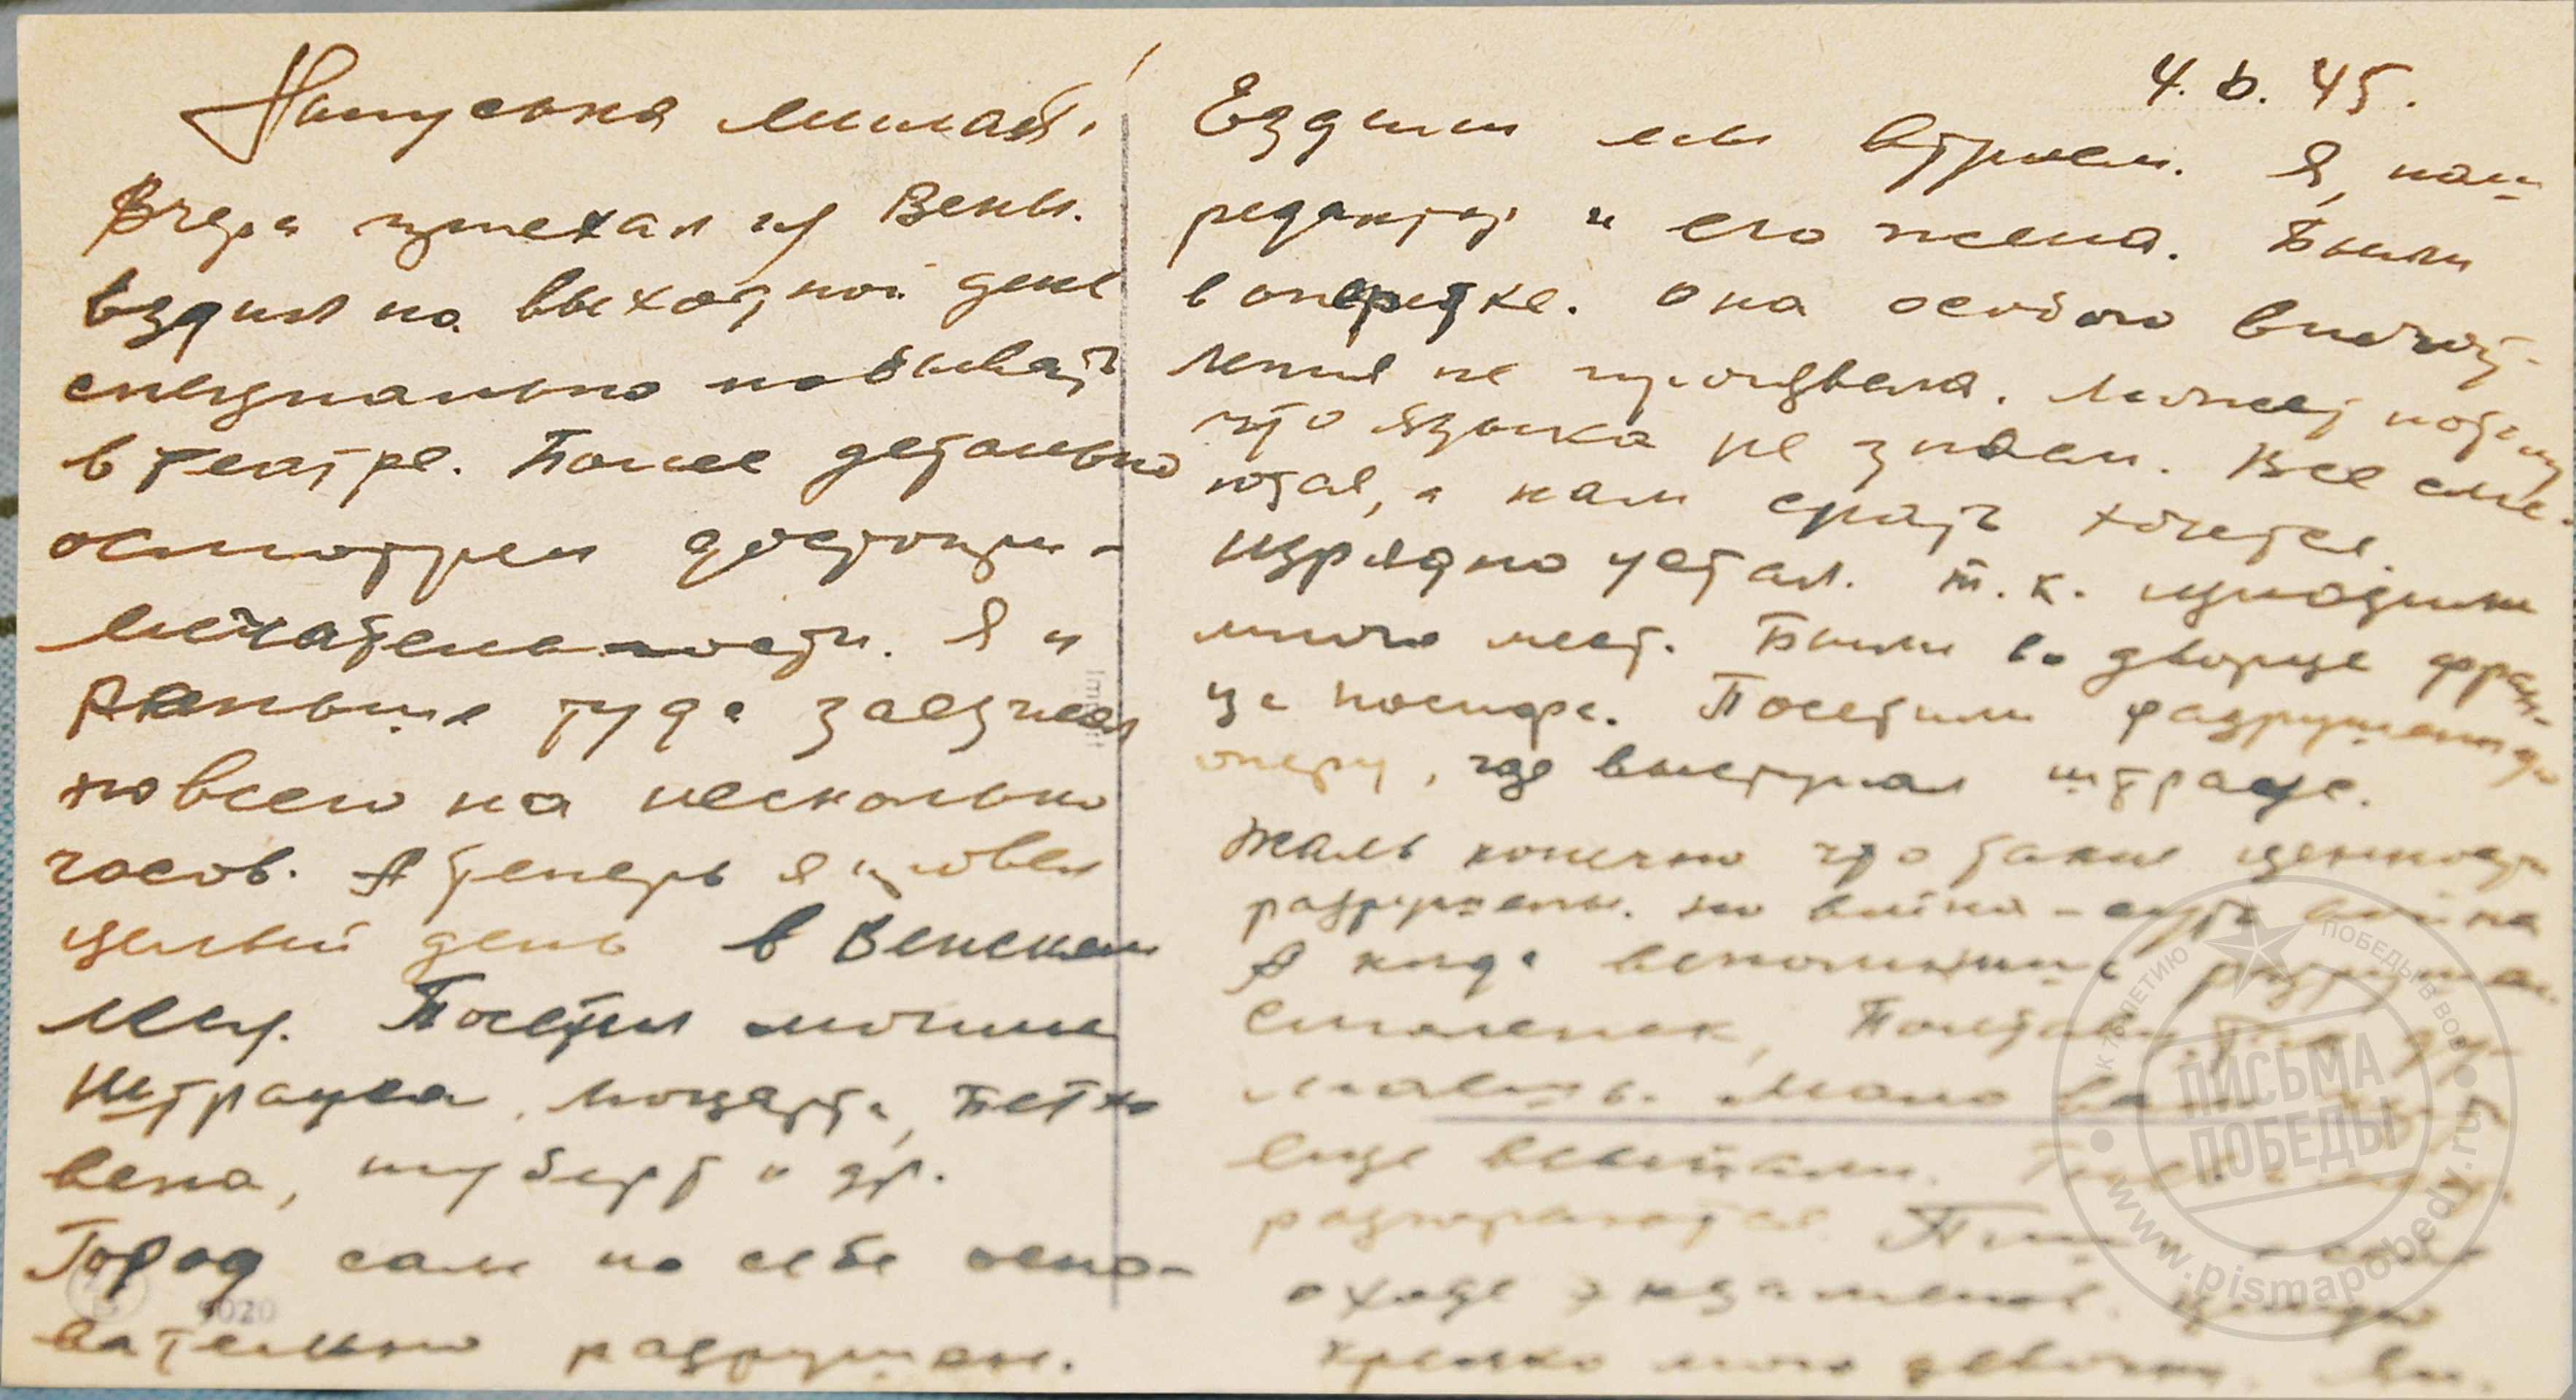 Напуська милая!
Вчера приехал из Вены.
Ездил на выходной день
специально побывать
в театре. Более детально
осмотрел достопри-
мечательности. Я и
раньше туда заезжал
но всего на несколько
часов. А теперь я провел
целый день в Венском
лесу. Посетил могилы
Штрауса, Моцарта, Бетхо
вена, Шуберт и др.
Город сам по себе осно-
вательно разрушен.
4.6.45.
Ездили мы втроем. Я, наш
редактор и его жена. Были
в оперетке. Она особого впечат-
ления не произвела. Может потому
что языка не знаем. Все сме-
ются, а нам спать хочется.
Изрядно устал. т.к. исходили
много мест. Были во дворце Фран-
ца Иосифа. Посетили разрушенную
оперу, где выступал Штраус.
Жаль конечно что такие ценности
разрушены. но война - есть война
А когда вспомнишь разрушен.
Смоленск, Полтаву,
Мало
еще всыпали.
разгораются. Пиши
о ходе экзаменов. Целую
крепко мою девочку.
К 75-ЛЕТИЮ ПОБЕДЫ В ВОВ
ПИСЬМА
ПОБЕДЫ
www.pismapobedy.ru